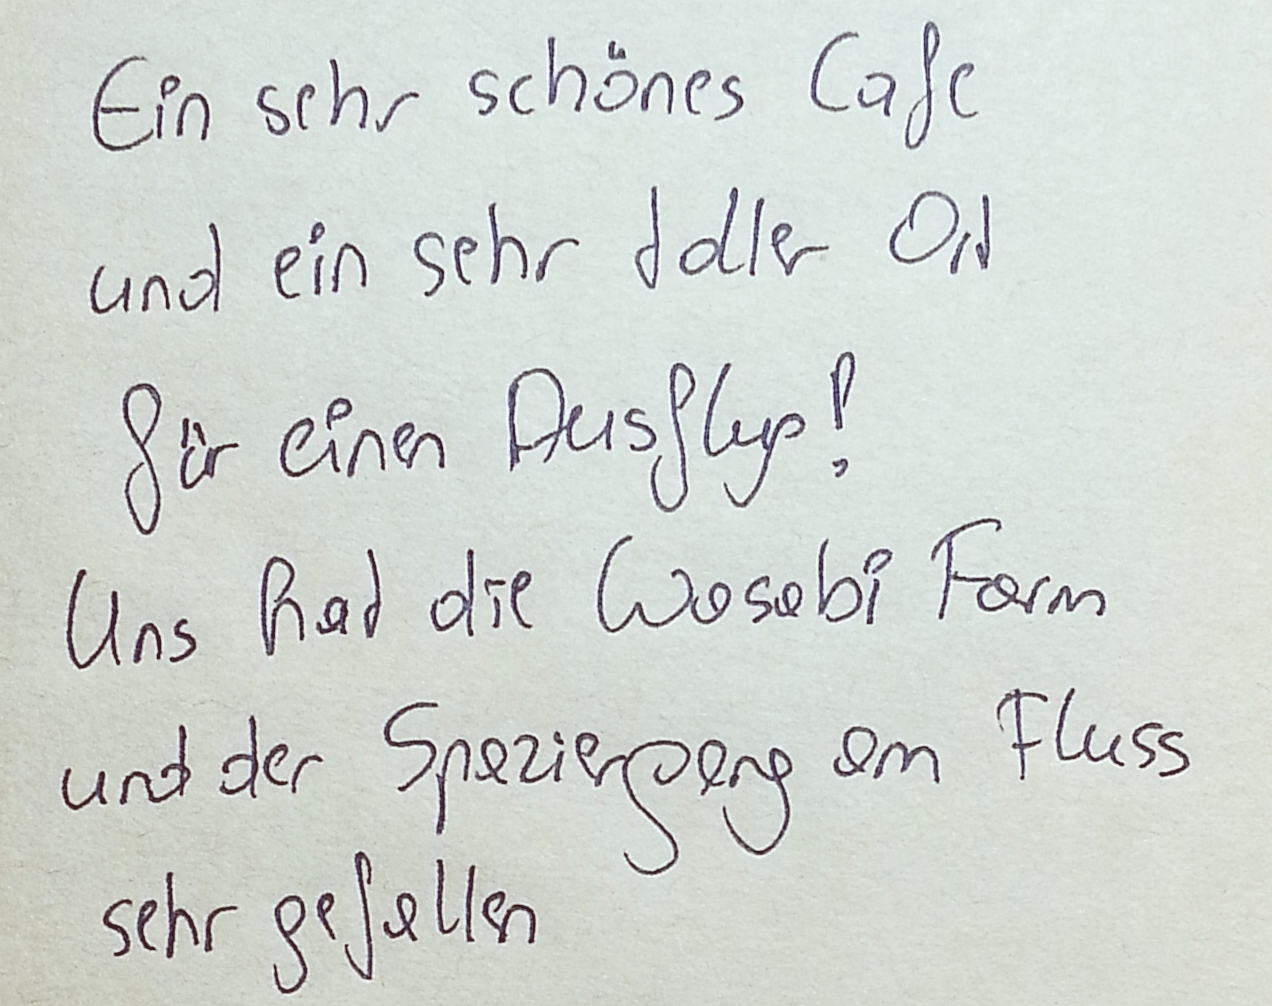 Ein sehr schönes Cafe
und ein sehr toller Ort
für einen Ausflug!
Uns hat die Wasabi Farm
und der Spaziergang am Fluss
sehr gefallen